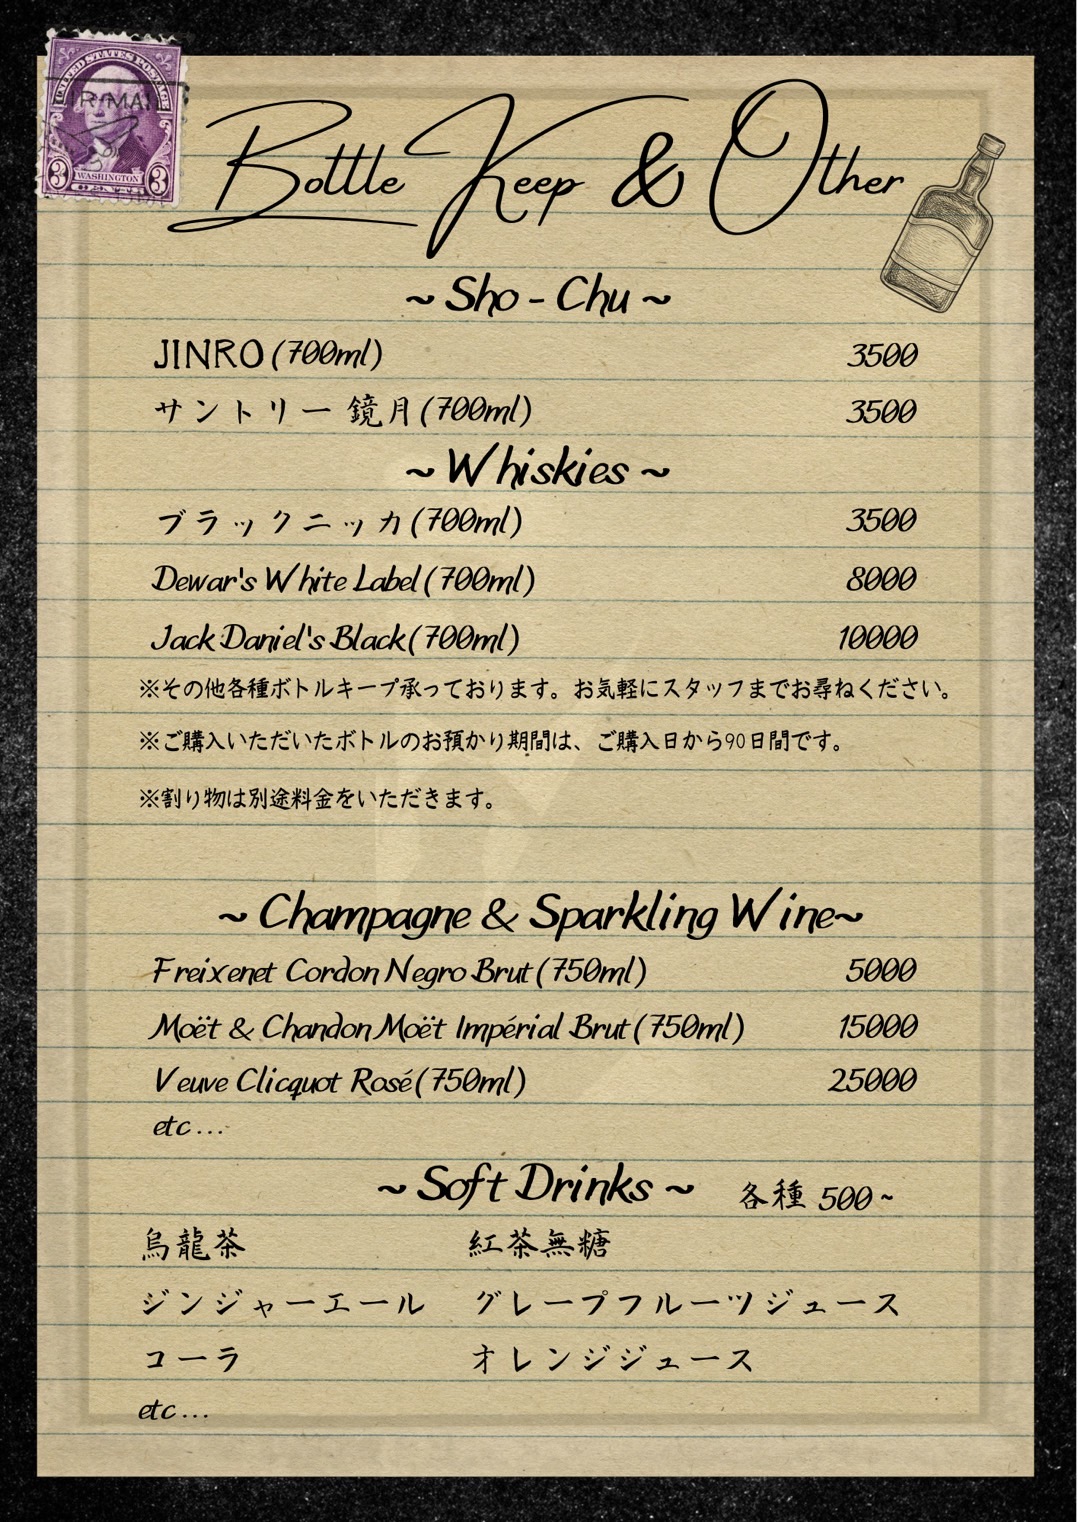 UNITED STATES POSTAGE
3 WASHINGTON 3
Bottle Keep & Other
~ Sho - Chu ~
JINRO (700ml) 3500
サントリー 鏡月 (700ml) 3500
~ Whiskies ~
ブラックニッカ (700ml) 3500
Dewar's White Label (700ml) 8000
Jack Daniel's Black (700ml) 10000
※その他各種ボトルキープ承っております。お気軽にスタッフまでお尋ねください。
※ご購入いただいたボトルのお預かり期間は、ご購入日から90日間です。
※割り物は別途料金をいただきます。
~ Champagne & Sparkling Wine~
Freixenet Cordon Negro Brut (750ml) 5000
Moët & Chandon Moët Impérial Brut (750ml) 15000
Veuve Clicquot Rosé (750ml) 25000
etc...
~ Soft Drinks ~ 各種 500~
烏龍茶 紅茶無糖
ジンジャーエール グレープフルーツジュース
コーラ オレンジジュース
etc...